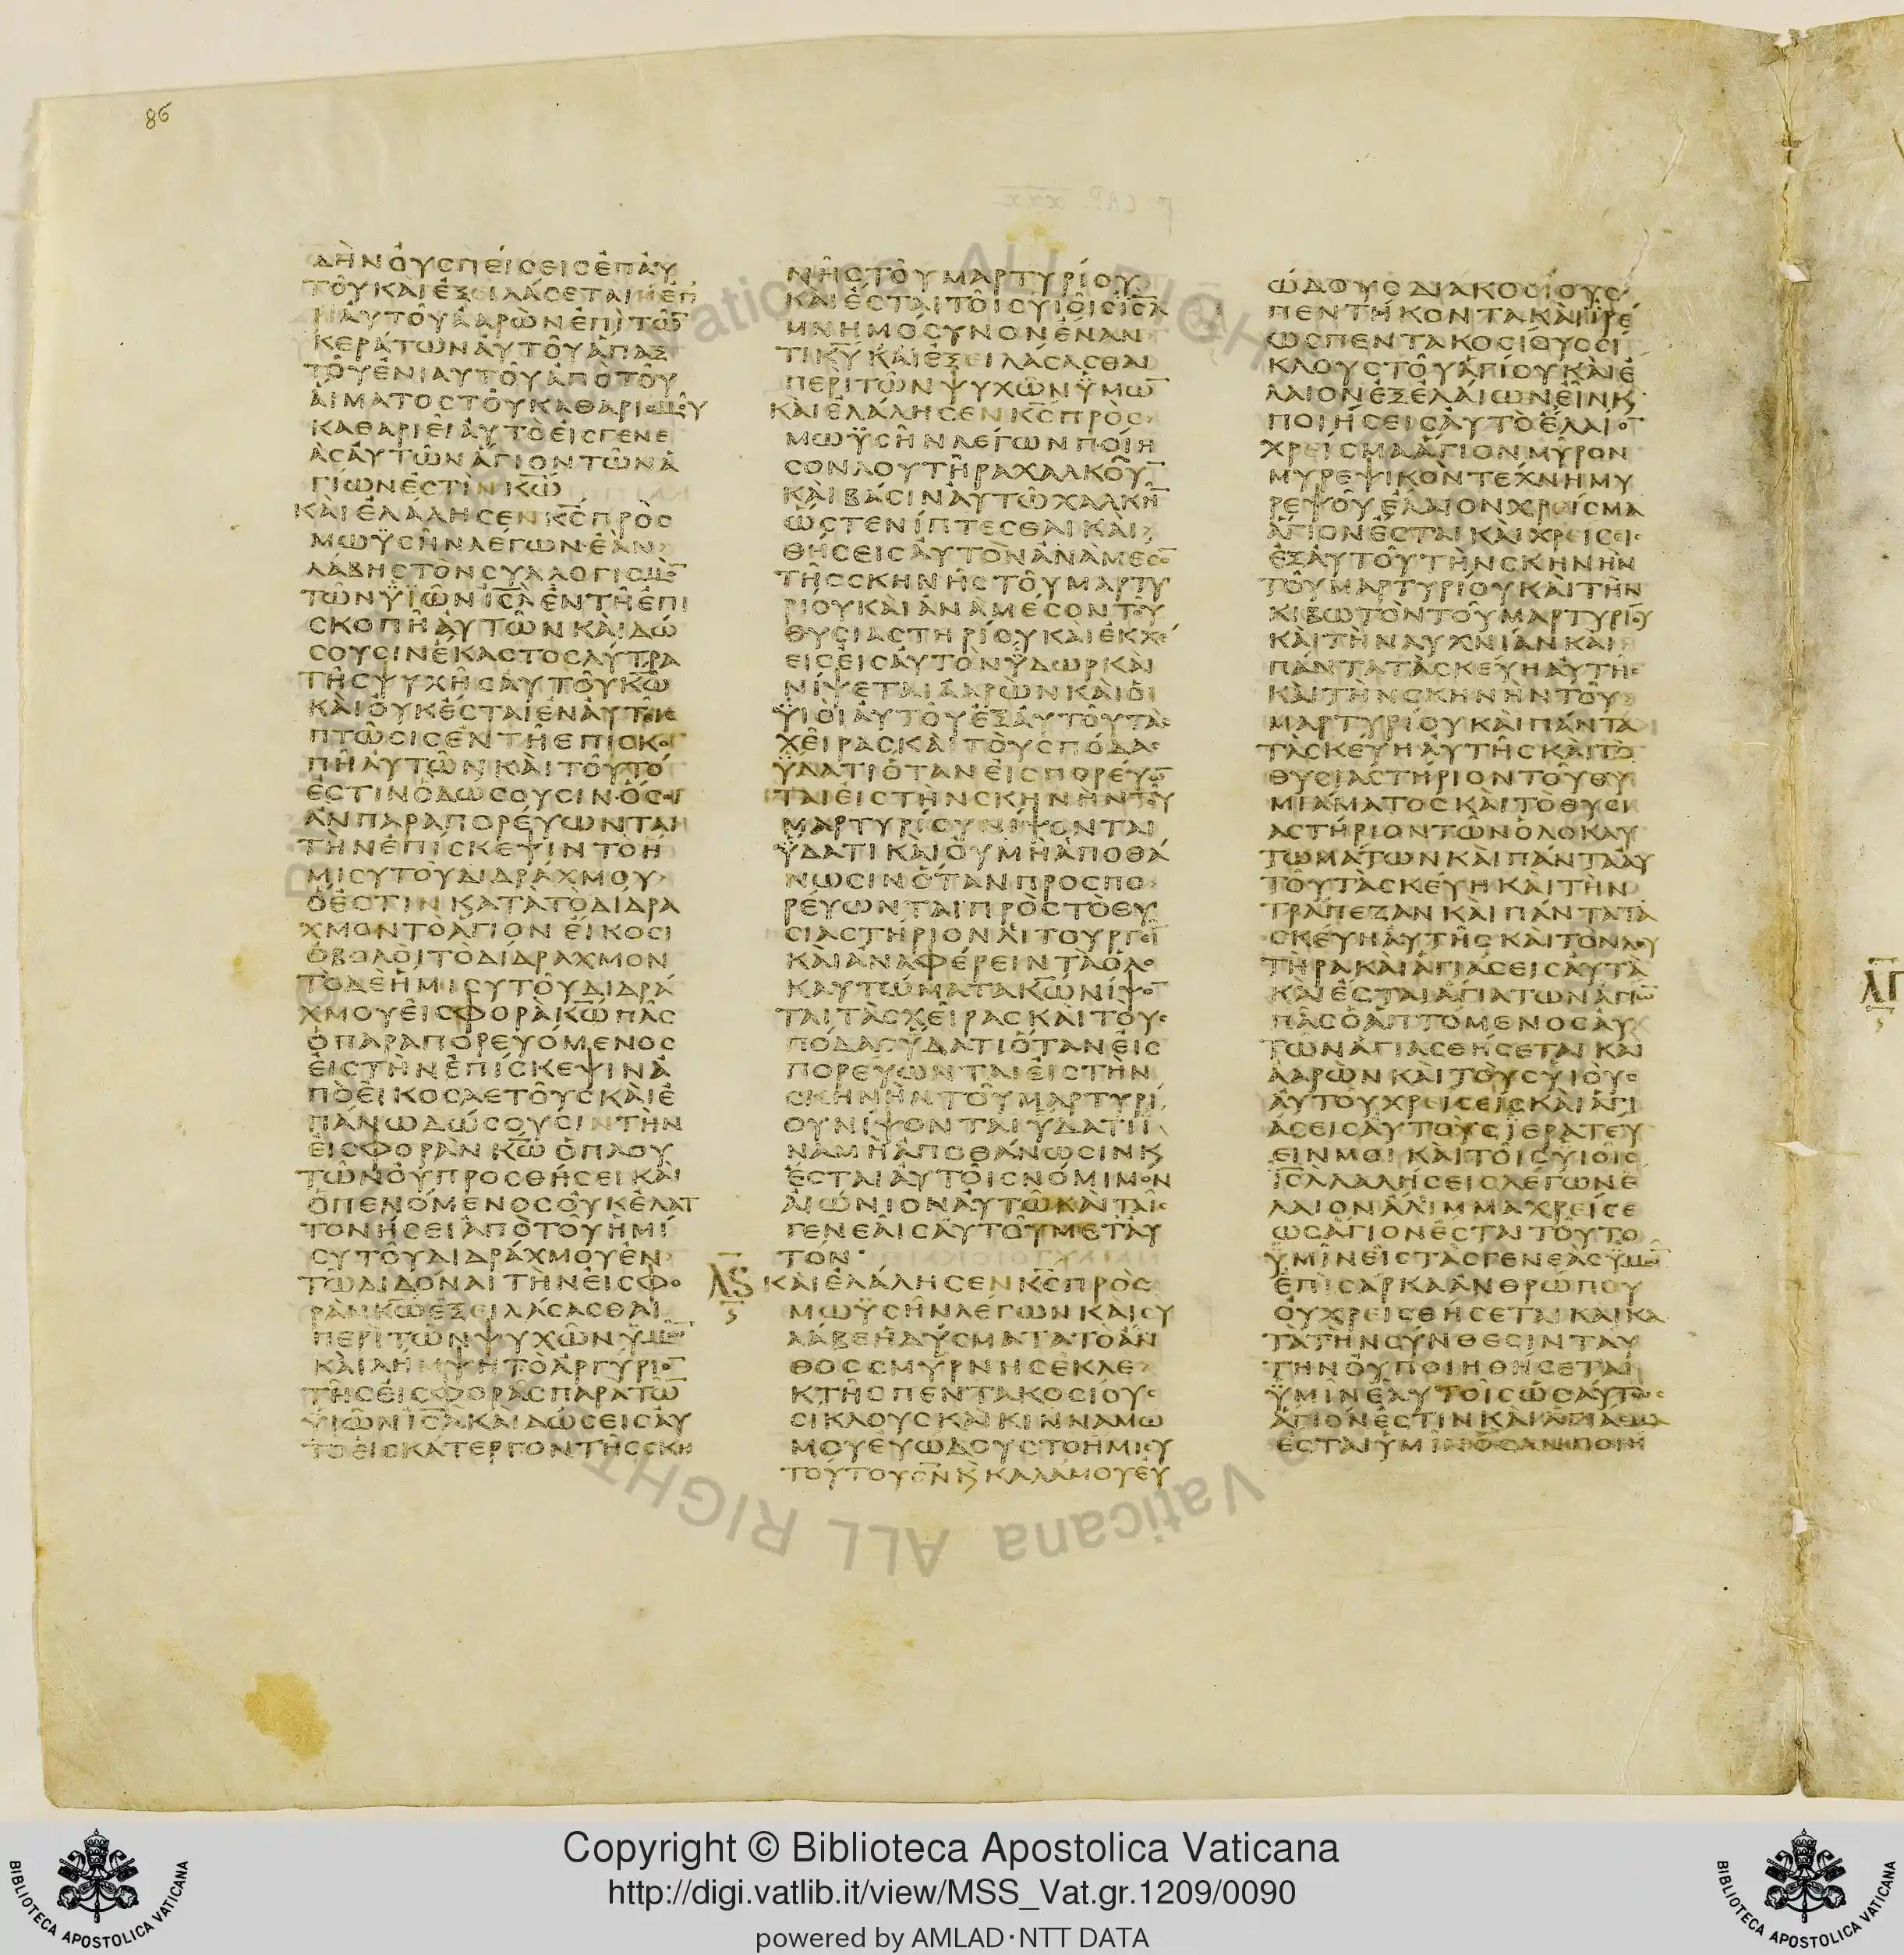 86
δὴν οὐσπείσεισἐπαυ
τοῦκαὶἐξειλάσεταιἐπ
αυτοῦἀαρὼνἐπὶτῶ̅
κεράτωναὐτοῦἅπαξ
τοῦἐνιαυτοῦἀπὸτοῦ
αἵματοστοῦκαθαρισμοῦ
καθαριεῖαὐτὸεἰσγενε
ὰσαὐτῶνἅγιοντῶνἁ
γίωνἐστὶνκ̅ω̅
καὶἐλάλησενκ̅σ̅πρὸσ
μωϋσῆνλέγων·ἐὰν
λάβηστὸνσυλλογισμὸ̅
τῶνϋἱῶνι̅σ̅λ̅ἐντῆἐπι
σκοπῆαὐτῶνκαὶδώ
σουσινἕκαστοσλύτρα
τῆσψυχῆσαὐτοῦκ̅ω̅
καὶοὐκἔσταιἐναὐτοῖσ
πτῶσισἐντῆἐπισκο
πῆαὐτῶνκαὶτοῦτό
ἐστινὃδώσουσινὅσοι
ἂνπαραπορεύωνται
τὴνἐπίσκεψιντὸἥ
μισυτοῦδιδράχμου
ὅἐστινκατὰτὸδίδρα
χμοντὸἅγιονεἴκοσι
ὀβολοὶτὸδίδραχμον
τὸδὲἥμισυτοῦδιδρά
χμουεἰσφορὰκ̅ω̅πᾶσ
ὁπαραπορευόμενοσ
εἰστὴνἐπίσκεψινἀ
πὸεἰκοσαετοῦσκαὶἐ
πάνωδώσουσιντὴν
εἰσφορὰνκ̅ω̅ὁπλου
τῶνοὐπροσθήσεικαὶ
ὁπενόμενοσοὐκἐλατ
τονήσειἀπὸτοῦημί
συτοῦδιδράχμουἐν
τῶδιδόναιτὴνεἰσφο
ρὰνκ̅ω̅ἐξειλάσασθαι
περὶτῶνψυχῶνϋμῶ̅
καὶλήμψητὸἀργύριο̅
τῆσεἰσφορᾶσπαρατῶ̅
ϋἱῶνι̅σ̅λ̅καὶδώσεισαὐ
τὸεἰσκάτεργοντῆσσκη
νῆστοῦμαρτυρίου
καὶἔσταιτοῖσυἱοῖσι̅σ̅λ̅
μνημόσυνονἔναν
τικ̅υ̅καὶἐξειλάσασθαι
περὶτῶνψυχῶνϋμῶ̅
καὶἐλάλησενκ̅σ̅πρὸσ
μωϋσῆνλέγωνποίη
σονλουτῆραχαλκοῦ̅
καὶβάσιναὐτῶχαλκῆ̅
ὥστενίπτεσθαικαὶ
θήσεισαὐτὸνἀνὰμέσο̅
τῆσσκηνῆστοῦμαρτυ
ρίουκαὶἀνὰμέσοντοῦ
θυσιαστηρίουκαὶἐκχε
εῖσεἰσαὐτὸνὕδωρκαὶ
νίψεταιἀαρὼνκαὶοἱ
ϋἱοὶαὐτοῦἐξαὐτοῦτὰσ
χεῖρασκαὶτοὺσπόδασ
ὕδατιὅτανεἰσπορεύω̅
ταιεἰστὴνσκηνὴντοῦ
μαρτυρίουνίψονται
ὕδατικαὶοὐμὴἀποθά
νωσινὅτανπροσπο
ρεύωνταιπρὸστὸθυ
σιαστήριονλιτουργεῖ̅
καὶἀναφέρειντὰὁλο
καυτώματακ̅ω̅νίψο̅
ταιτὰσχεῖρασκαὶτοὺσ
πόδασὕδατιὅτανεἰσ
πορεύωνταιεἰστὴν
σκηνὴντοῦμαρτυρί
ουνίψονταιὕδατιἵ
ναμὴἀποθάνωσινκ
ἔσταιαὐτοῖσνόμιμον
αἰώνιοναὐτῶκαὶταῖσ
γενεαῖσαὐτοῦμετ᾽αὐ
τόν·
λς καὶἐλάλησενκ̅σ̅πρὸσ
μωϋσῆνλέγωνκαὶσὺ
λάβεἡδύσματατὸἄν
θοσσμύρνησἐκλε
κτῆσπεντακοσίουσ
σίκλουσκαὶκινναμώ
μουεὐώδουστὸἥμισυ
τούτουσ̅ν̅κ̀καλάμουεὐ
ώδουσδιακοσίουσ
πεντήκοντακαὶἴρε
ωσπεντακοσίουσσί
κλουστοῦἁγίουκαὶἔ
λαιονἐξἐλαίωνεἲνκ
ποιήσεισαὐτὸἔλαιο̅
χρεῖσμαἅγιονμύρον
μυρεψικὸντέχνημυ
ρεψοῦἔλαιονχρεῖσμα
ἅγιονἔσταικαὶχρείσεισ
ἐξαὐτοῦτὴνσκηνὴν
τοῦμαρτυρίουκαὶτὴν
κιβωτὸντοῦμαρτυρίου
καὶτὴνλυχνίανκαὶ
πάντατὰσκεύηαὐτῆσ
καὶτὴνσκηνὴντοῦ
μαρτυρίουκαὶπάντα
τὰσκεύηαὐτῆσκαὶτὸ
θυσιαστήριοντοῦθυ
μιάματοσκαὶτὸθυσι
αστήριοντῶνὁλοκαυ
τωμάτωνκαὶπάντααὐ
τοῦτὰσκεύηκαὶτὴν
τράπεζανκαὶπάντατὰ
σκεύηαὐτῆσκαὶτὸνλου
τῆρακαὶἁγιάσεισαὐτὰ
καὶἔσταιἅγιατῶνἁγίω̅
πᾶσὁἁπτόμενοσαὐ
τῶνἁγιασθήσεταικαὶ
ἀαρὼνκαὶτοὺσυἱοὺσ
αὐτοῦχρείσεισκαὶἁγι
άσεισαὐτοὺσἱερατεύ
εινμοικαὶτοῖσυἱοῖσ
ι̅σ̅λ̅λαλήσεισλέγωνἔ
λαιονἄλιμμαχρείσε
ωσἅγιονἔσταιτοῦτο
ϋμῖνεἰστὰσγενεὰσϋμῶ̅
ἐπὶσάρκαἀνθρώπου
οὐχρεισθήσεταικαὶκα
τὰτὴνσύνθεσινταύ
τηνοὐποιηθήσεται
ϋμῖνἑαυτοῖσὡσαύτωσ
ἅγιόνἐστινκαὶἁγίασμα
ἔσταιϋμῖνὃσἂνποιή
Copyright © Biblioteca Apostolica Vaticana
http://digi.vatlib.it/view/MSS_Vat.gr.1209/0090
powered by AMLAD·NTT DATA
BIBLIOTECA APOSTOLICA VATICANA
BIBLIOTECA APOSTOLICA VATICANA